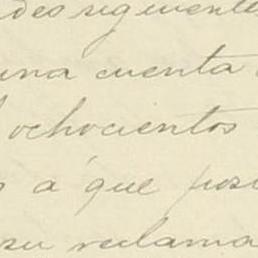 des siguientes
una cuenta
ochocientos
á que pos
su reclama